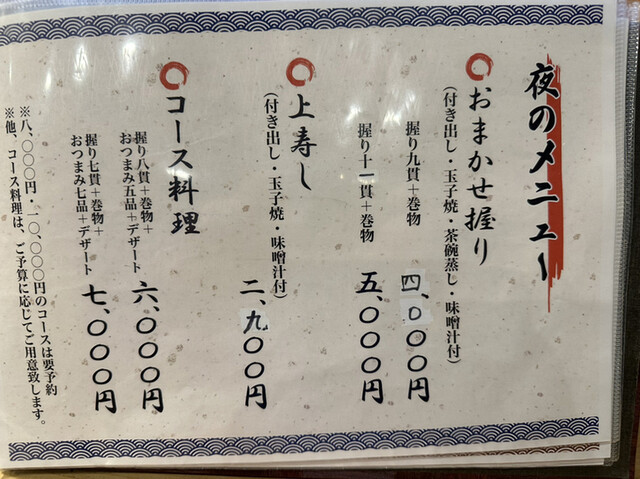 夜のメニュー
おまかせ握り
（付き出し・玉子焼・茶碗蒸し・味噌汁付）
握り九貫＋巻物 四、〇〇〇円
握り十一貫＋巻物 五、〇〇〇円
上寿し
（付き出し・玉子焼・味噌汁付） 二、九〇〇円
コース料理
握り八貫＋巻物＋
おつまみ五品＋デザート 六、〇〇〇円
握り七貫＋巻物＋
おつまみ七品＋デザート 七、〇〇〇円
※八、〇〇〇円・一〇、〇〇〇円のコースは要予約
※他、コース料理は、ご予算に応じてご用意致します。